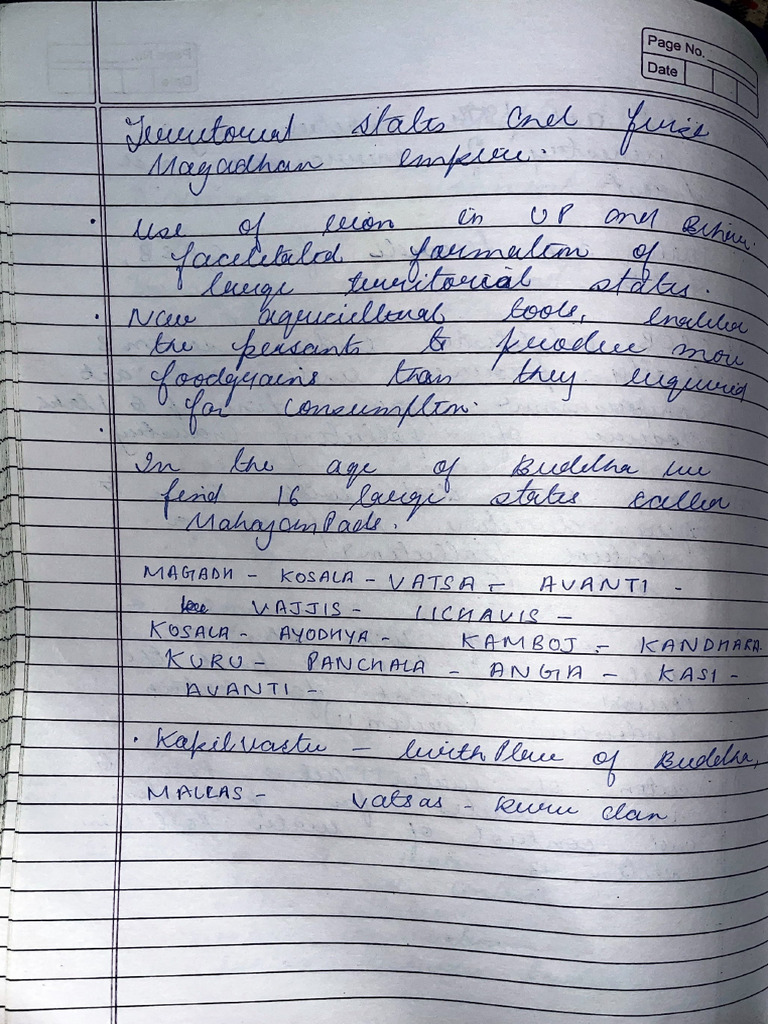 Page No.
Date
Territorial states and first
Magadhan empire.
Use of iron in UP and Bihar.
facilitated formation of
large territorial states.
New agricultural tools, enabled
the peasants to produce more
foodgrains than they required
for consumption.
In the age of Buddha we
find 16 large states called
MahajanPads.
MAGADH - KOSALA - VATSA - AVANTI -
VAJJIS - LICHAVIS -
KOSALA - AYODHYA - KAMBOJ - KANDHARA.
KURU - PANCHALA - ANGA - KASI -
AVANTI -
Kapilvastu - birthPlace of Buddha,
MALLAS - Vatsas - Kuru clan